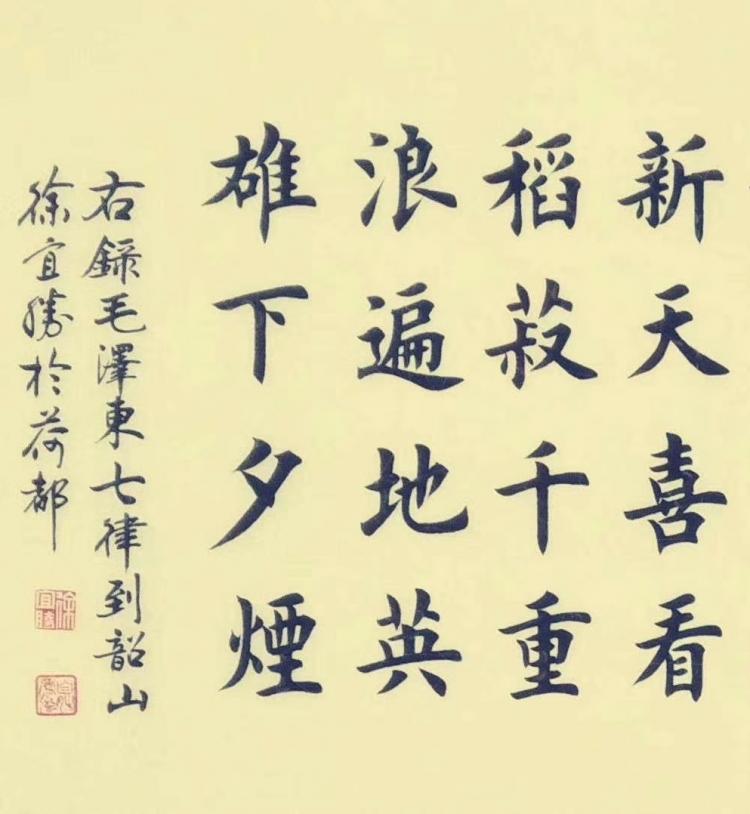 新天喜看
稻菽千重
浪遍地英
雄下夕煙
右錄毛澤東七律到韶山
徐宜勝於荷都
徐宜勝